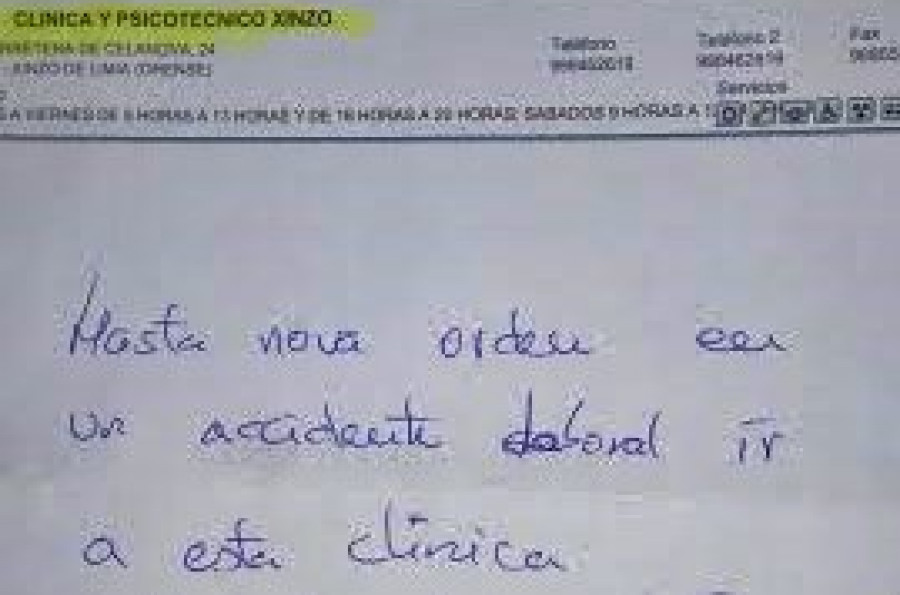 CLINICA Y PSICOTECNICO XINZO
RRETERA DE CELANOVA, 24
XINZO DE LIMIA (ORENSE)
Teléfono
988462018
Teléfono 2
Fax
Servicios
A VIERNES DE 9 HORAS A 13 HORAS Y DE 16 HORAS A 20 HORAS; SABADOS 9 HORAS A 1
Hasta nova orden en
un accidente laboral ir
a esta clinica